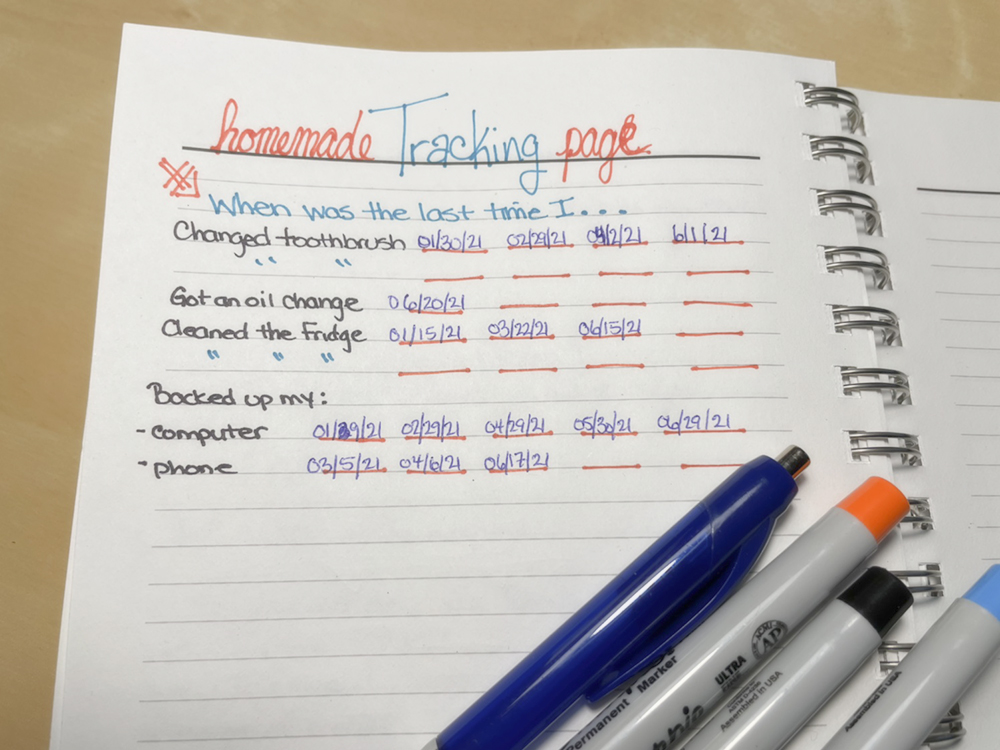 homemade Tracking page
When was the last time I...
Changed toothbrush 01/30/21 02/29/21 04/2/21 6/1/21
" "
Got an oil change 06/20/21
Cleaned the fridge 01/15/21 03/22/21 06/15/21
" " "
Backed up my:
- computer 01/29/21 02/29/21 04/29/21 05/30/21 06/29/21
- phone 03/5/21 04/6/21 06/17/21
Permanent Marker
ULTRA
AD
Assembled in USA
Assembled in USA